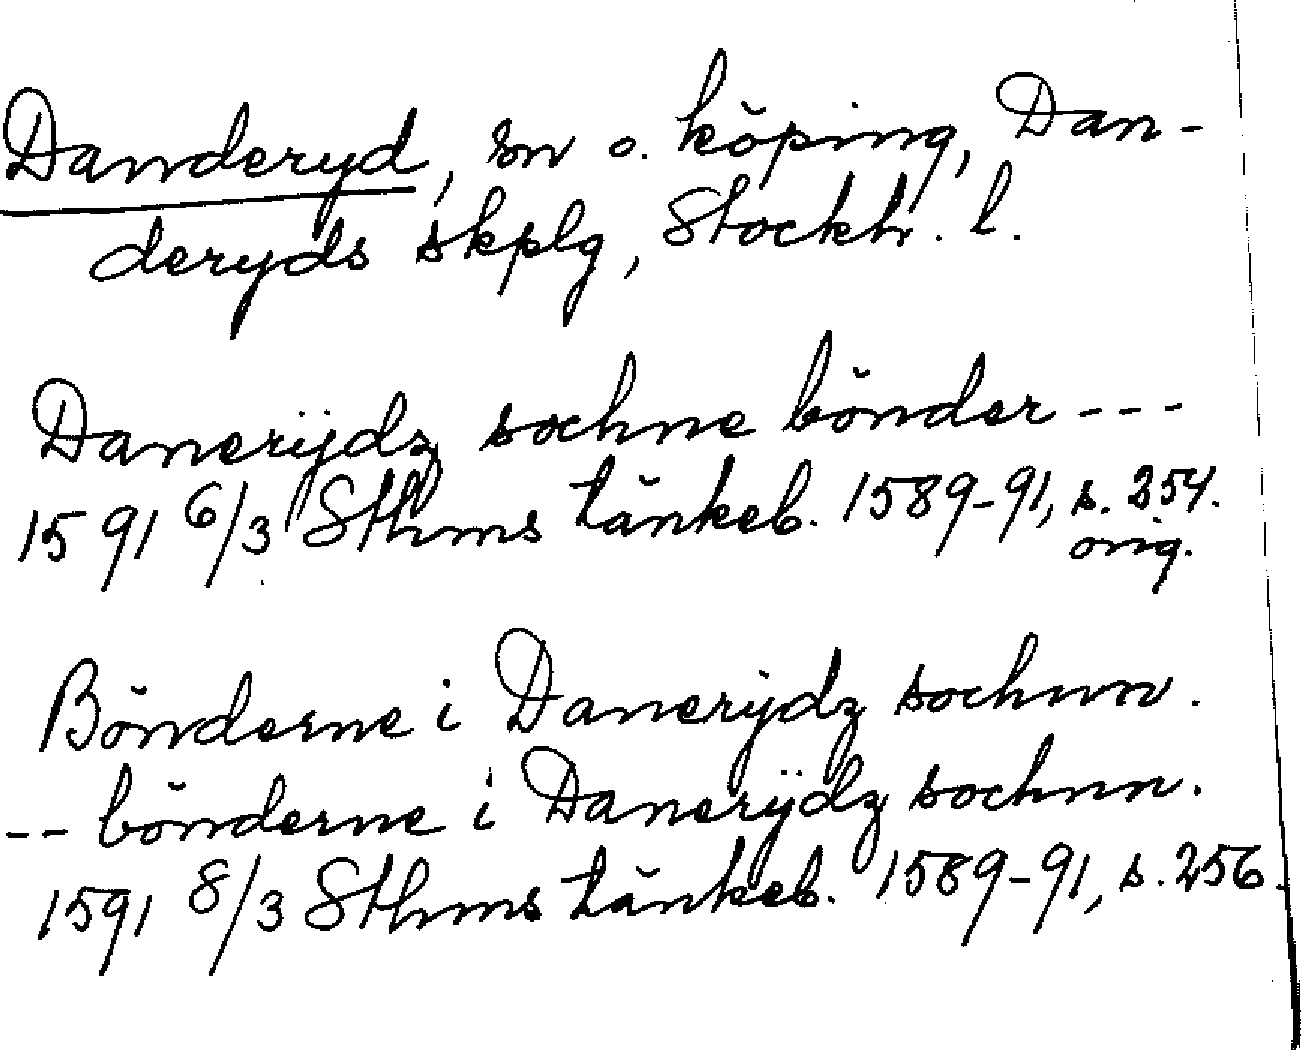 Danderyd, sn o. köping, Dan-
deryds skplg, Stockh. l.
Danerÿdz sochne bönder ---
1591 6/3 Sthms tänkeb. 1589-91, s. 254.
orig.
Bönderne i Danerÿdz sochnn.
-- bönderne i Danerÿdz sochnn.
1591 8/3 Sthms tänkeb. 1589-91, s. 256.